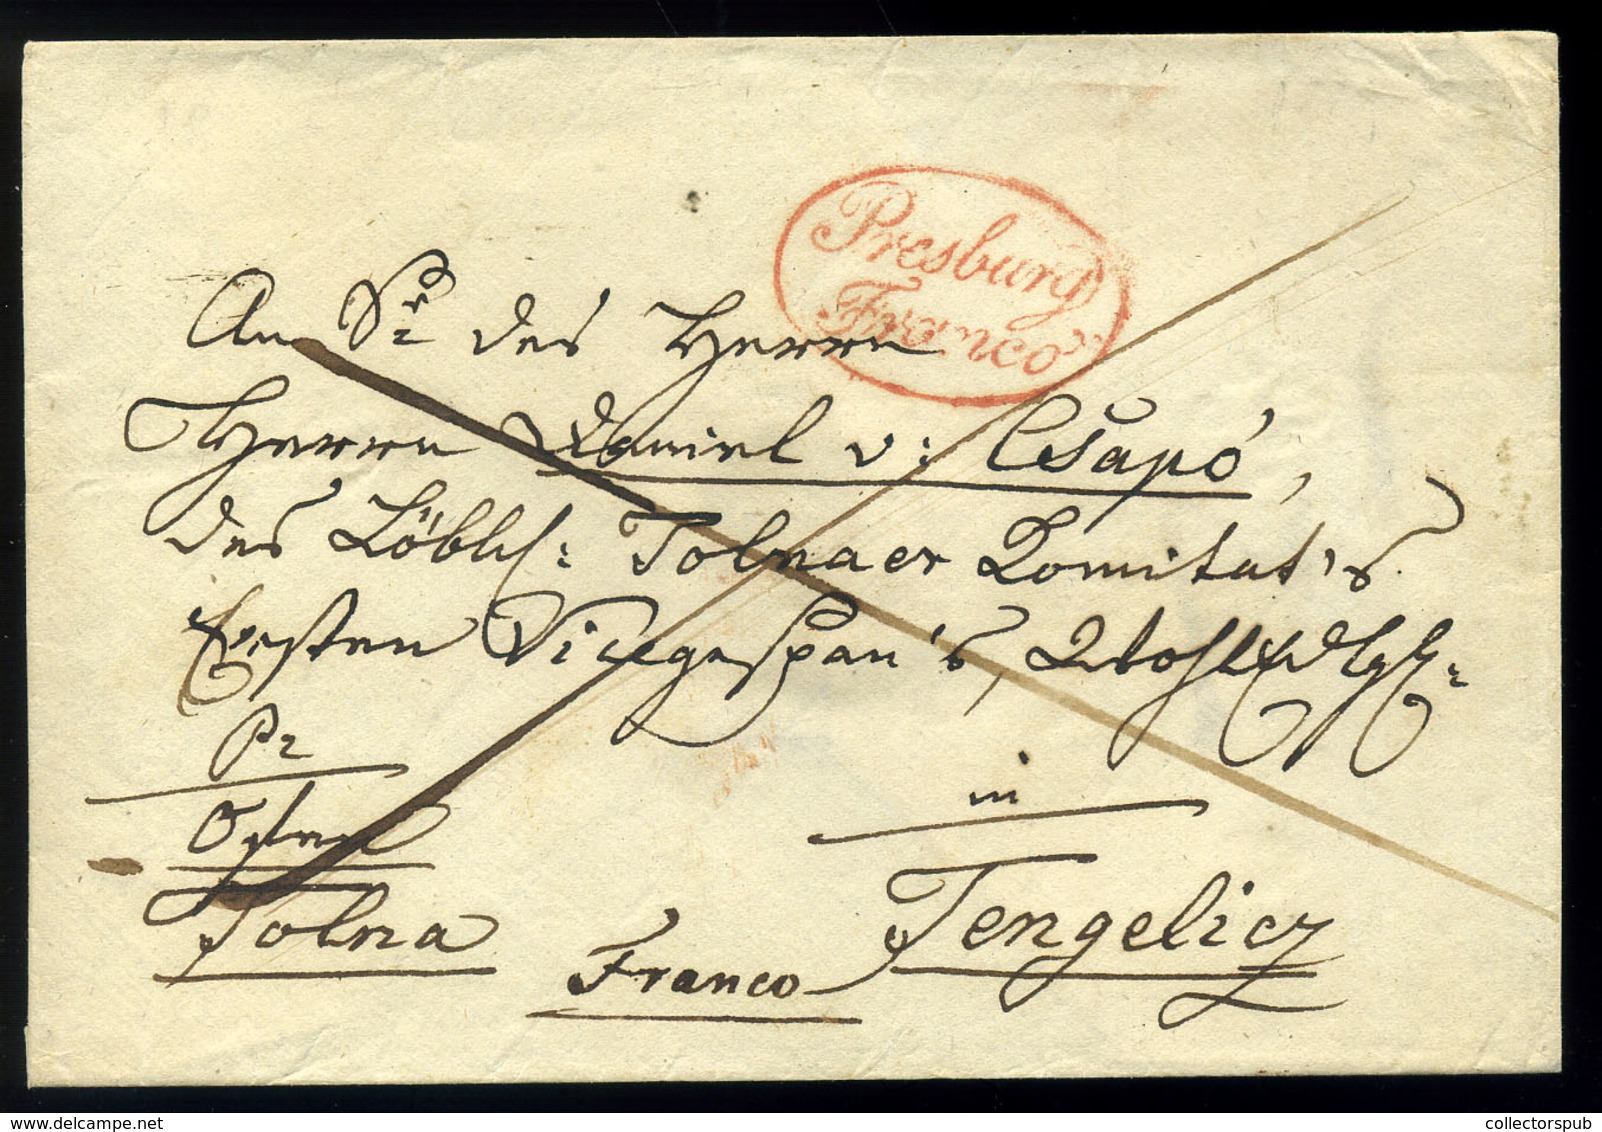 Presburg
Franco
An Sr des Herrn
Herrn Daniel v: Csapó,
des Löblch: Tolnaer Comitat's
Ersten Vicegespan's, Wohl
Pr
Ofen
Tolna
in
Tengelicz
Franco
www.delcampe.net
collectorspub